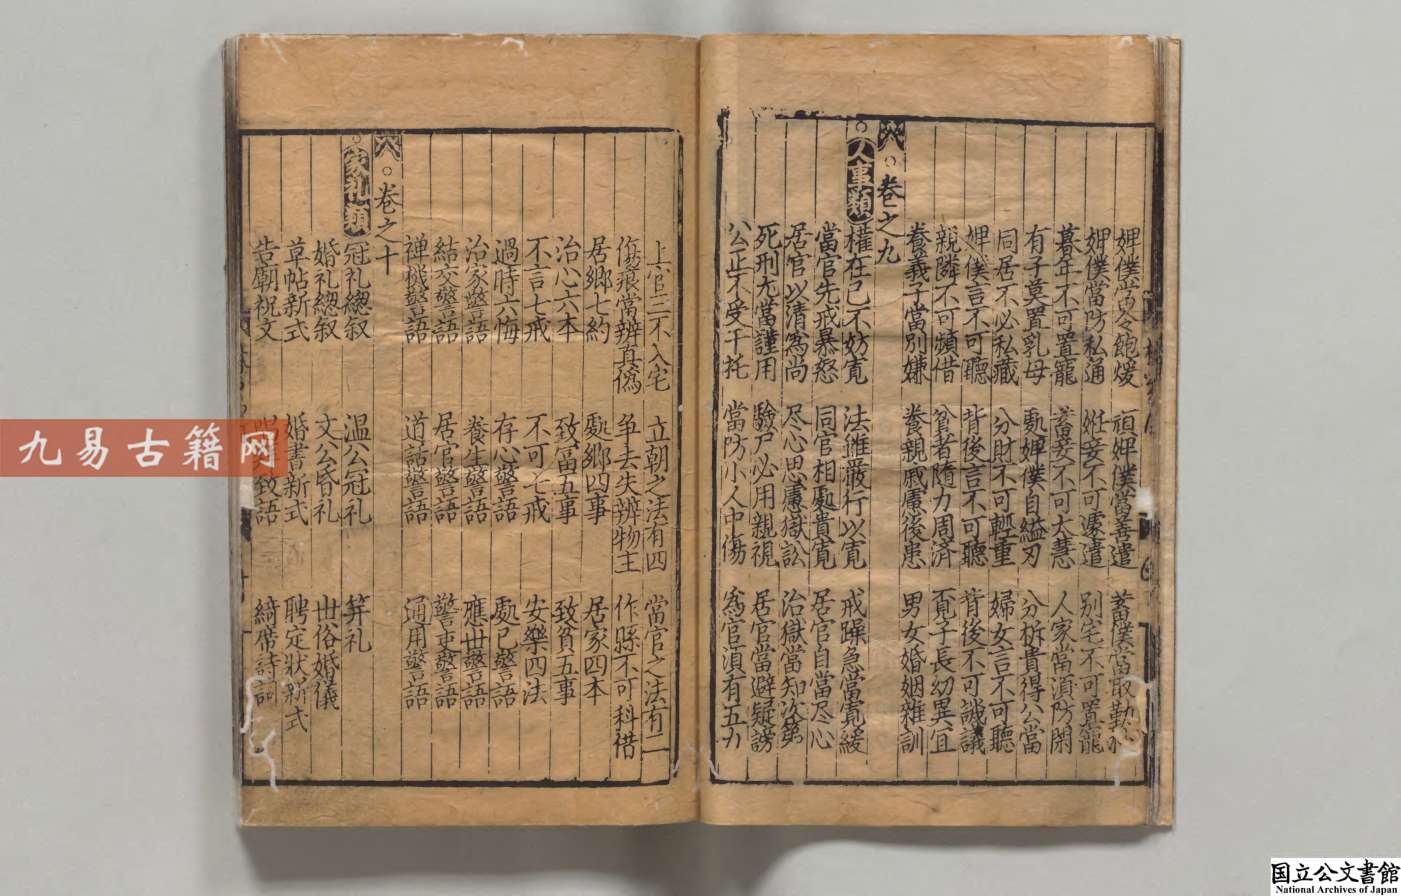 婢僕當令飽煖 頑婢僕當善遣 蓄僕當取勤
婢僕當防私通 婢妾不可遽遣 別宅不可置寵
暮年不可置寵 蓄妾不可太慧 人家當須防閑
有子莫置乳母 䖏婢僕自縊刃 分析貴得公當
同居不必私藏 分財不可輕重 婦女言不可聽
婢僕言不可聽 背後言不可聽 背後不可譏議
親隣不可頻借 貧者隨力周済 百子長幼異宜
養義子當別嫌 養親戚慮後患 男女婚姻雜訓
○卷之九
○人事類 權在己不妨寬 法雖嚴行以寬 戒躁急當寬緩
當官先戒暴怒 同官相䖏貴寬 居官自當尽心
居官以清爲尚 尽心思慮獄訟 治獄當知次第
死刑尤當謹用 驗尸必用親視 居官當避疑謗
公正不受干托 當防小人中傷 爲官湏有五力
上官三不入宅 立朝之法有四 當官之法有二
傷痕當辨真僞 爭去失辨物主 作縣不可科借
居鄉七約 䖏鄉四事 居家四本
治心六本 致富五事 致貧五事
不言七戒 不可七戒 安樂四法
過時六悔 存心警語 䖏己警語
治家警語 養生警語 應世警語
結交警語 居官警語 警吏警語
禅機警語 道話警語 通用警語
○卷之十
○家礼類 冠礼總叙 温公冠礼 笄礼
婚礼總叙 文公昏礼 世俗婚儀
草帖新式 婚書新式 聘定狀新式
告廟祝文 致語 綺席詩詞
九易古籍网
国立公文書館
National Archives of Japan